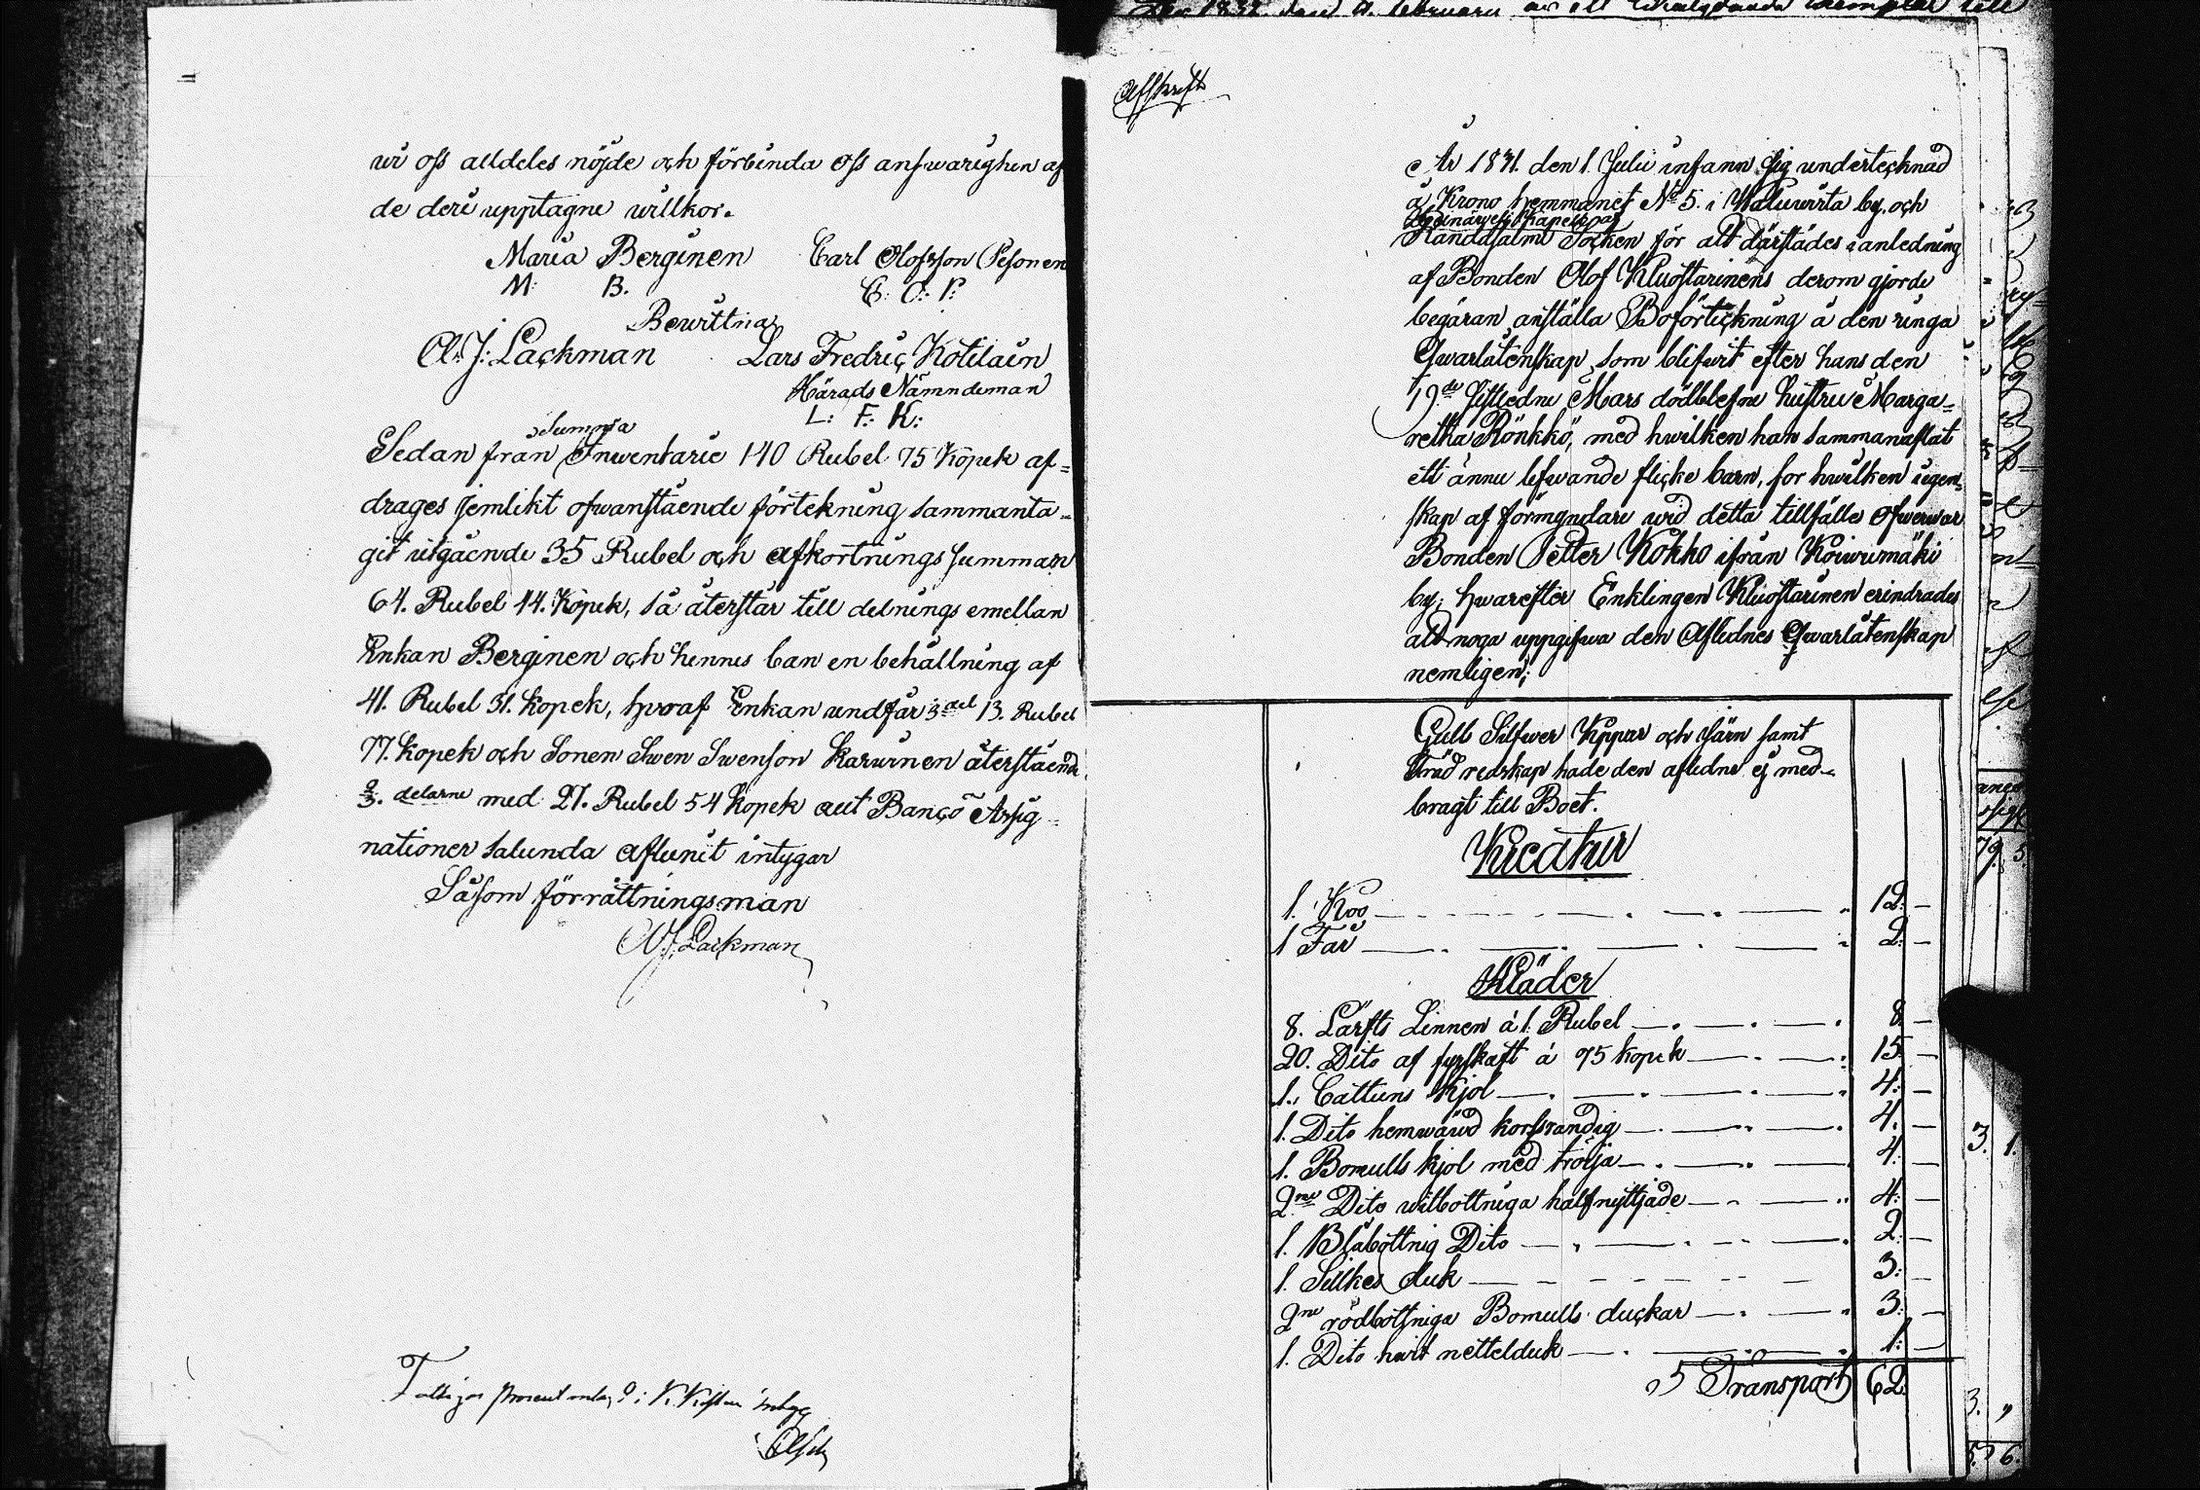 wi oss alldeles nöjde och förbinda oss answarighen af
de deri upptagne willkor.
Maria Berginen Carl Olofsson Pesonen
M: B. C: O: P:
Bewittna
A: J: Lackman Lars Fredric Kotilain
Härads Nämndeman
L: F: K:
Summa
Sedan från Inwentarie 140 Rubel 75 Kopek af=
drages jemlikt ofwanstående förtekning sammanta=
git utgående 35 Rubel och afkortnings summan
64. Rubel 44. Kopek, så återstår till delnings emellan
Enkan Berginen och hennes ban en behållning af
41. Rubel 31. kopek, hwaraf Enkan undfår 3 del 13. Rubel
77. kopek och Sonen Swen Swenson Karwinen återstående
2/3. delarne med 27. Rubel 54 Kopek aut Banco Assig=
nationer salunda aflunit intygar
Såsom förrättningsman
A. J. Lackman
Afskrift
År 1831. den 1. Julii infann sig undertecknad
å Krono hemmanet No 5. i Waluwirta by. och
Randasalmi Socken för att därstädes i anledning
af Bonden Olof Kluostarinens derom gjorde
begäran anställa Boförteckning å den ringa
Qwarlåtenskap, som blifwit efter hans den
19de sistledne Mars dödblefne hustru Marga=
retha Rönkkö, med hwilken han sammanaflat
ett ännu lefwande flicke barn, for hwilken i egen=
skap af förmyndare wid detta tillfälle öfwerwar
Bonden Petter Kokko ifrån Koiwumäki
by; hwarefter Enklingen Kluostarinen erindrades
att noga uppgifwa den Aflidnes Qwarlåtenskap
nemligen;
Gull Silfwer Koppar och Järn samt
Träd redskap hade den aflidne ej med=
bragt till Boet.
Kreatur
1. Koo 12. —
1 Får 2. —
Kläder
8. Lärfts Linnen á 1. Rubel 8. —
20. Dito af fyrskaft á 75 kopek 15. —
1. Cattuns Kjol 4. —
1. Dito hemwäwd korssrandig 4. —
1. Bomulls kjol med tröija 4. —
2ne Dito witbottniga halfnyttjade 4. —
1. Blåbottnig Dito 2. —
1. Silkes duk 3. —
2ne rödbottniga Bomulls duckar 3. —
1. Dito hwit nettelduk 1. —
Transport 62